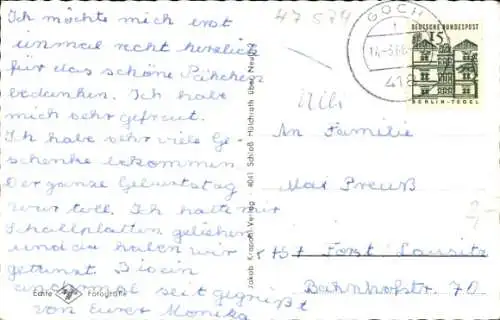 Ich möchte mich erst
einmal recht herzlich
für das schöne Päkchen
bedanken. Ich habe
mich sehr gefreut.
Ich habe sehr viele Ge-
schenke bekommen
Der ganze Geburtstag
war toll. Ich hatte mir
Schallplatten geliehen
und da haben wir
getanzt. Bis
ein andermal seit gegrüßt
von Eurer Monika
Echte Fotografie
Jakob Krapohl Verlag 4041 Schloß Hülchrath über Neuß
47 574
GOCH
418
DEUTSCHE BUNDESPOST
15
BERLIN-TEGEL
An Familie
Max Preuß
Forst Lausitz
Bahnhofstr. 70